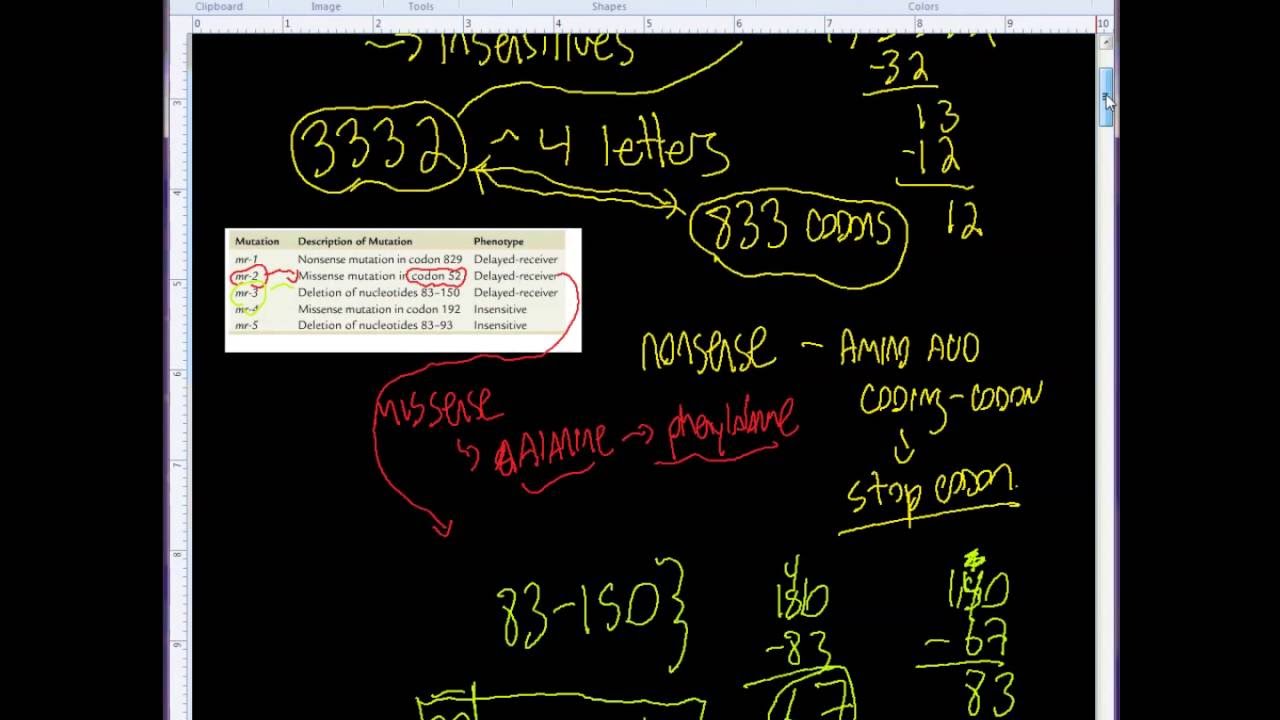 Clipboard Image Tools Shapes Colors
0 1 2 3 4 5 6 7 8 9 10
→ Insensitives
-32
13
-12
12
3332 ~ 4 letters
833 codons
3
4
5
6
7
8
9
Mutation Description of Mutation Phenotype
mr-1 Nonsense mutation in codon 829 Delayed-receiver
mr-2 Missense mutation in codon 52 Delayed-receiver
mr-3 Deletion of nucleotides 83–150 Delayed-receiver
mr-4 Missense mutation in codon 192 Insensitive
mr-5 Deletion of nucleotides 83–93 Insensitive
nonsense - AMINO ACID
CODING-CODON
↓
stop codon.
missense
↳ AlANINE → phenylalanine
83-150}
150
-83
67
150
-67
83